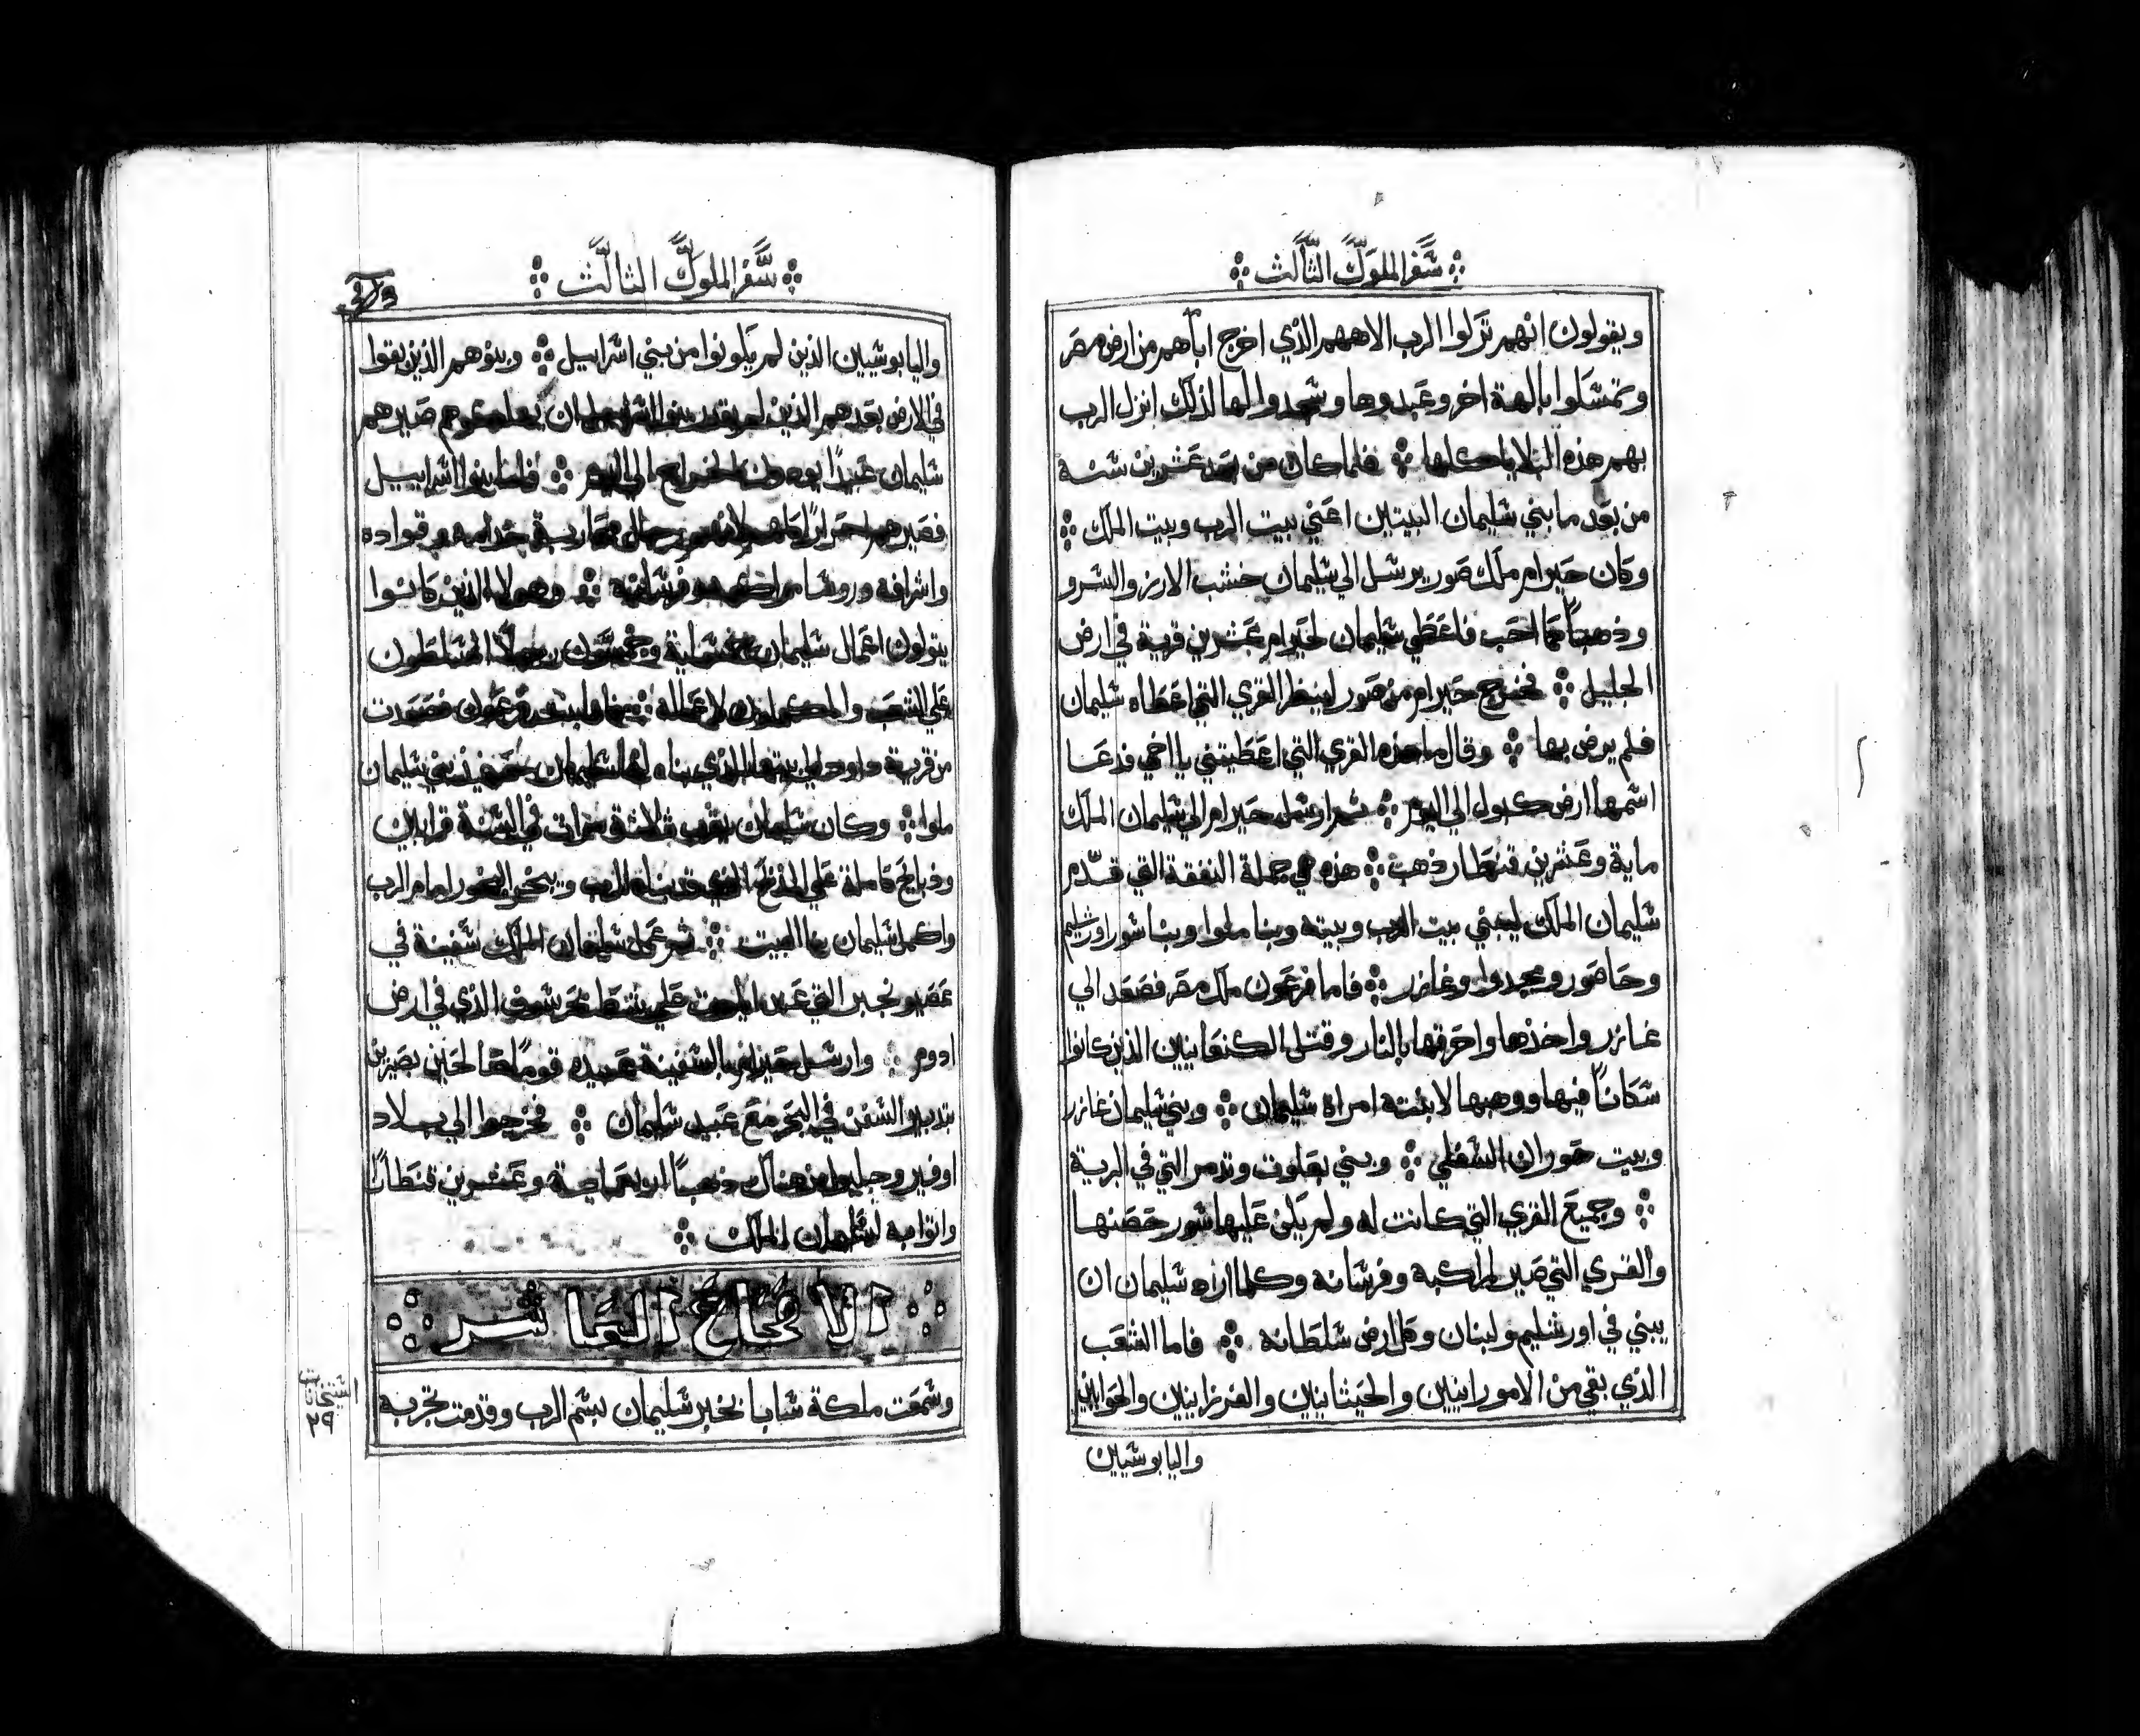 سفر الملوك الثالث
ويقولون انهم تركوا الرب الاههم الذي اخرج اباهم من ارض مصر
وتمسكوا بالهة اخر وعبدوها وسجدوا لها لذلك انزل الرب
بهم هذه البلايا كلها ܀ فلما كان من بعد عشرين سنة
من بعد ما بني سليمان البيتين اعني بيت الرب وبيت الملك ܀
وكان حيرام ملك صور يرسل الي سليمان خشب الارز والسرو
وذهباً كما احب فاعطي سليمان لحيرام عشرين قرية في ارض
الجليل ܀ فخرج حيرام من صور لينظر القري التي اعطاه سليمان
فلم يرض بها ܀ وقال ما هذه القري التي اعطيتني يا اخي فدعا
اسمها ارض كبول الي اليوم ܀ ثم ارسل حيرام الي سليمان الملك
ماية وعشرين قنطار ذهب ܀ هذه هي جملة النفقة التي قدّم
سليمان الملك ليبني بيت الرب وبيته وبنا ملوا وبنا سور اورشليم
وحاصور ومجدوا وغازر ܀ فاما فرعون ملك مصر فصعد الي
غازر واخذها واحرقها بالنار وقتل الكنعانيين الذين كانوا
سكاناً فيها ووهبها لابنته امراة سليمان ܀ وبني سليمان غازر
وبيت حوران السفلي ܀ وبني بعلوت وتدمر التي في البرية
܀ وجميع القري التي كانت له ولم يكن عليها سور حصنها
والقري التي صير لمراكبه وفرسانه وكلما اراد سليمان ان
يبني في اورشليم ولبنان وكل ارض سلطانه ܀ فاما الشعب
الذي بقي من الامورانيين والحيثانيين والفرزانيين والحوايين
واليابوسيين
سفر الملوك الثالث
واليابوسيين الذين لم يكونوا من بني اسراييل ܀ وبنوهم الذين بقوا
في الارض بعدهم الذين لم يقدر بنوا اسراييل ان صيرهم
سليمان عبيداً يودون الخراج الي اليوم ܀ فاما بنوا اسراييل
فصيرهم احراراً كلهم لانهم رجال محاربة خدامه وقواده
واشرافه وروسا مراكبه وفرسانه ܀ وهولا الذين كانوا
يتولون اعمال سليمان خمسماية وخمسون رجلاً المسلطون
علي الشعب والمكملون لاعماله ܀ فاما ابنة فرعون فصعدت
من قرية داود الي بيتها الذي بناه لها سليمان حينيذ بني سليمان
ملوا ܀ وكان سليمان يقرب ثلاثة مرات في السنة قرابين
وذبايح كاملة علي المذبح الذي بناه للرب ويبخر البخور امام الرب
واكمل سليمان بنا البيت ܀ ثم عمل سليمان الملك سفينة في
عصيونجبر التي عند ايلوت علي شط بحر سوف الذي في ارض
ادوم ܀ وارسل حيرام بالسفينة عبيده قوماً ملاحين بصيرين
بتدبير السفن في البحر مع عبيد سليمان ܀ فخرجوا الي بلاد
اوفير وجلبوا من هناك ذهباً اربعماية وعشرين قنطاراً
واتوا به لسليمان الملك ܀
الاصحاح العاشر
وسمعت ملكة سابا بخبر سليمان بسم الرب وقدمت تجربه
٢٩